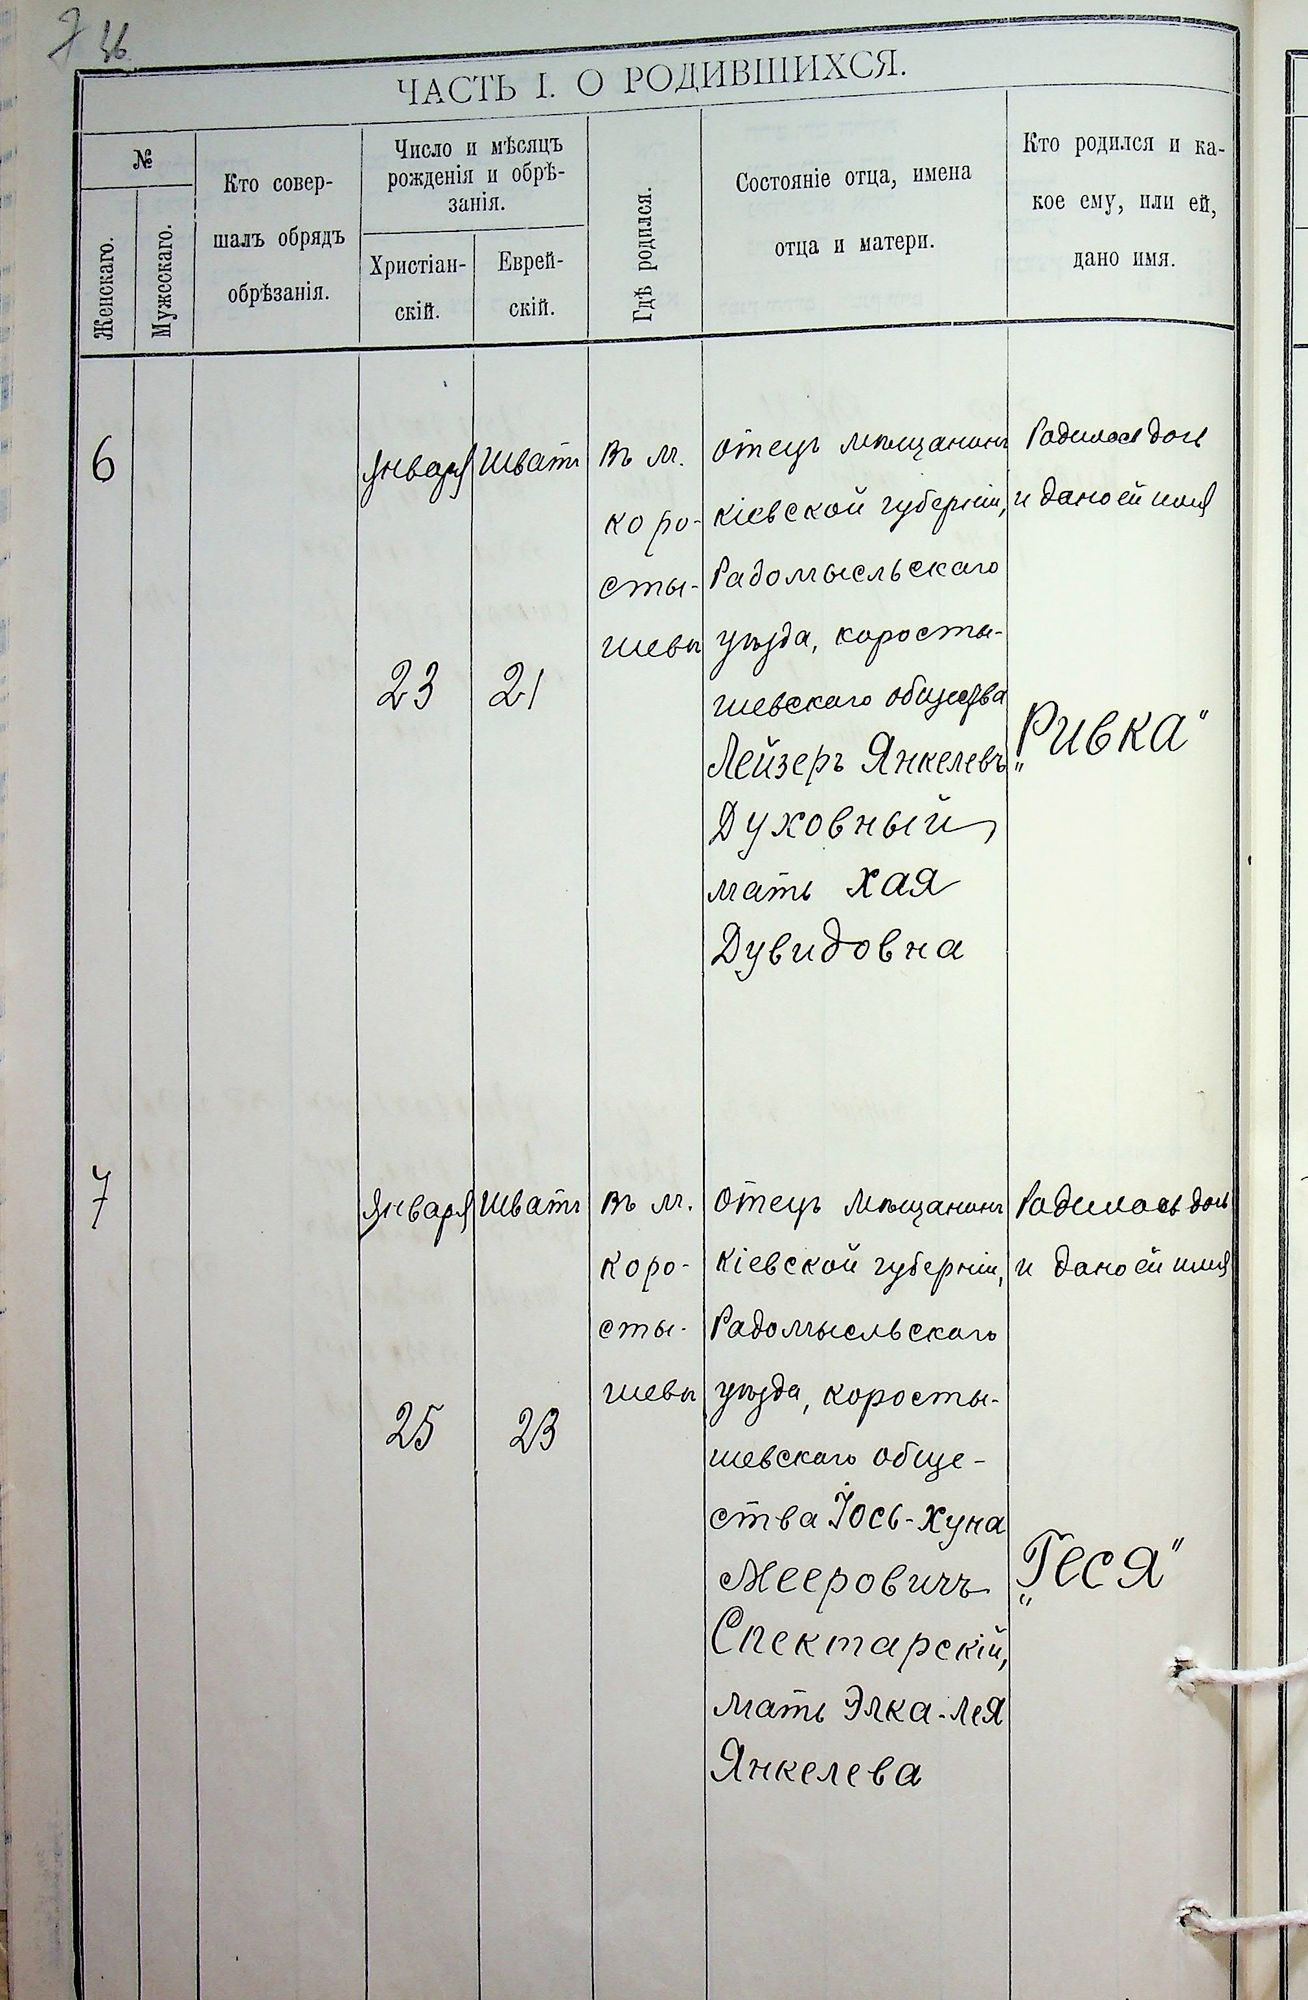 7 36.
ЧАСТЬ I. О РОДИВШИХСЯ.
№
Женскаго.
Мужескаго.
Кто совер-
шалъ обрядъ
обрѣзанія.
Число и мѣсяцъ
рожденія и обрѣ-
занія.
Христіан-
скій.
Еврей-
скій.
Гдѣ родился.
Состояніе отца, имена
отца и матери.
Кто родился и ка-
кое ему, или ей,
дано имя.
6
января
23
Шватъ
21
Въ м.
коро-
сты-
шевѣ
Отецъ мѣщанинъ
кіевской губерніи,
Радомысльскаго
уѣзда, коросты-
шевскаго общества
Лейзеръ Янкелевъ
Духовный
мать Хая
Дувидовна
Родилась дочь
и дано ей имя
„Ривка"
7
января
25
Шватъ
23
Въ м.
коро-
сты-
шевѣ
Отецъ мѣщанинъ
кіевской губерніи,
Радомысльскаго
уѣзда, коросты-
шевскаго обще-
ства Іось-Хуна
Мееровичъ
Спектарскій,
мать Элка-Лея
Янкелева
Родилась дочь
и дано ей имя
„Геся"